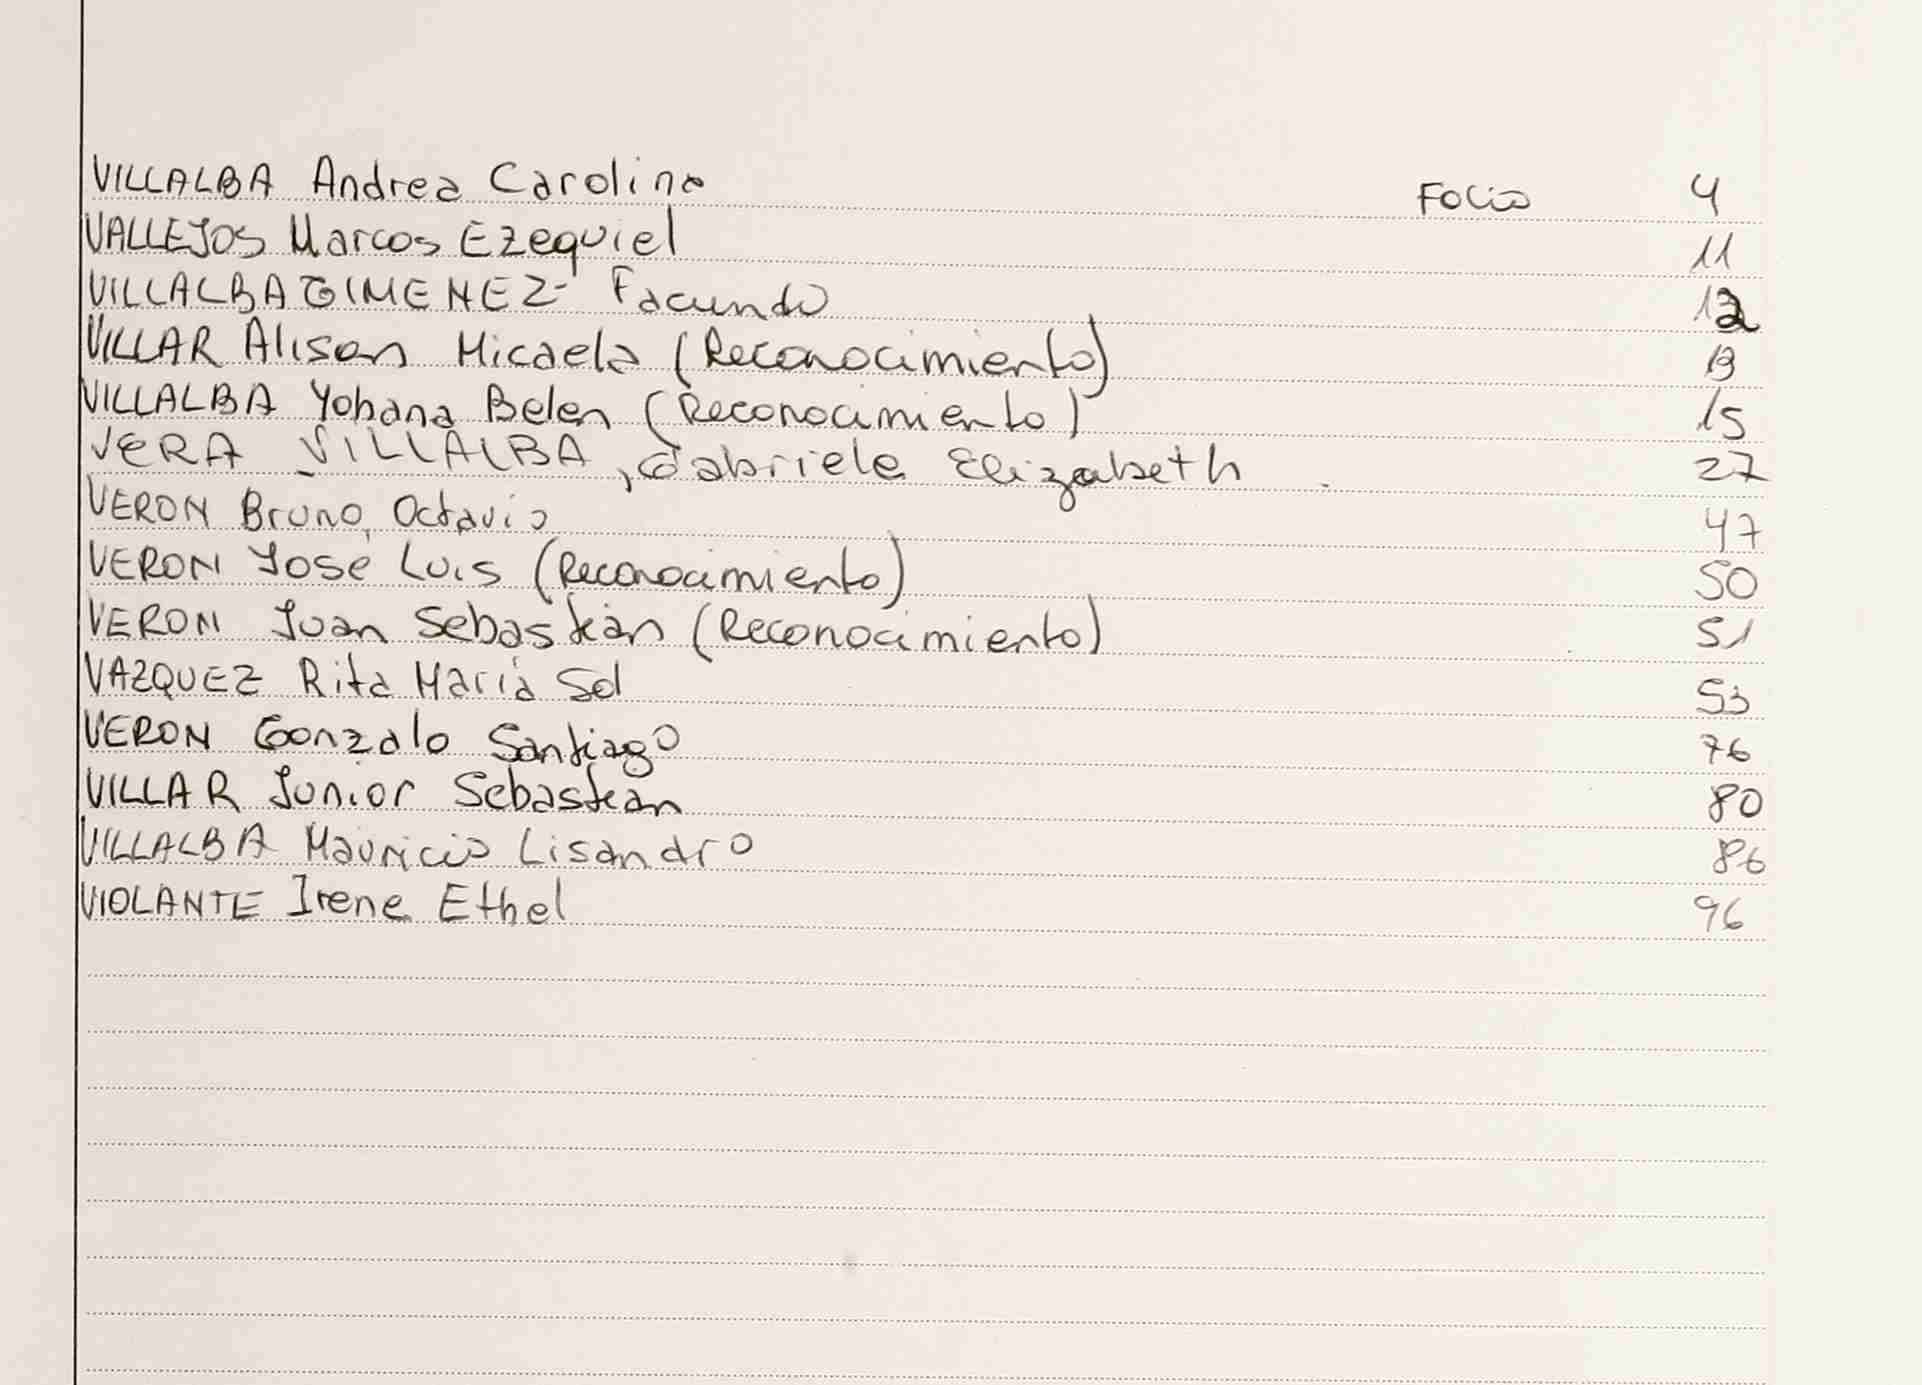 VILLALBA Andrea Carolina Folio 4
VALLEJOS Marcos Ezequiel 11
VILLALBA GIMENEZ Facundo 12
VILLAR Alison Micaela (Reconocimiento) 13
VILLALBA Yohana Belen (Reconocimiento) 15
VERA VILLALBA, Gabriela Elizabeth 27
VERON Bruno Octavio 47
VERON José Luis (Reconocimiento) 50
VERON Juan Sebastián (Reconocimiento) 51
VAZQUEZ Rita María Sol 53
VERON Gonzalo Santiago 76
VILLAR Junior Sebastian 80
VILLALBA Mauricio Lisandro 86
VIOLANTE Irene Ethel 96